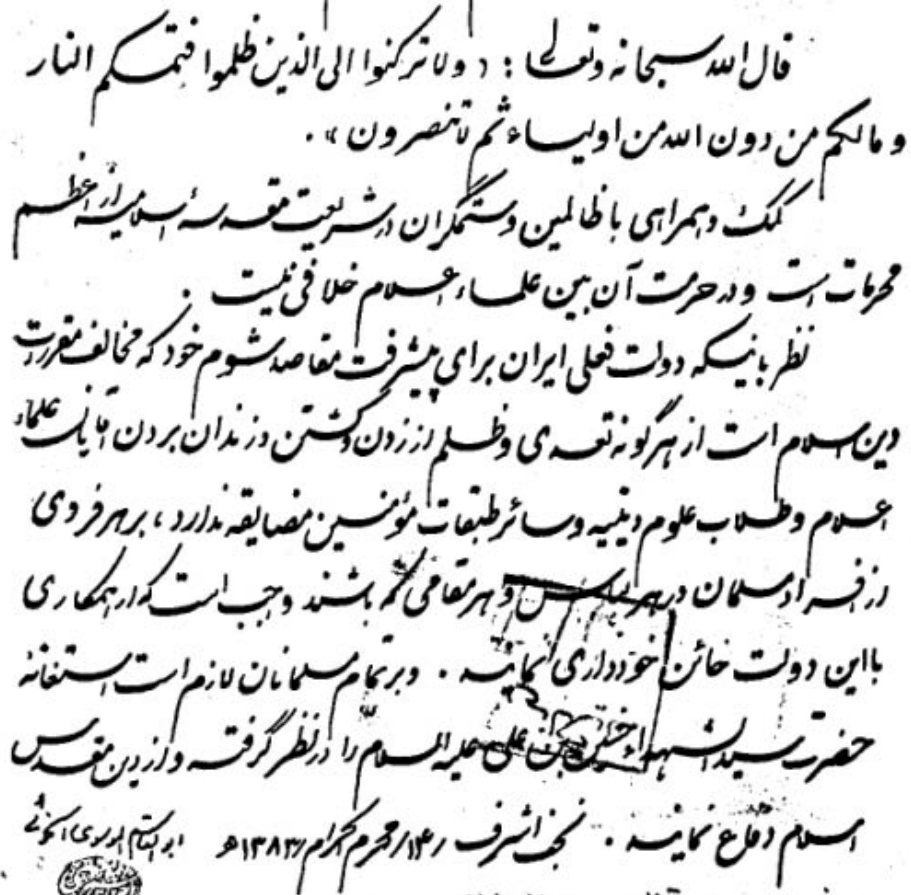 قال الله سبحانه وتعالی : « ولا ترکنوا الی الذین ظلموا فتمسکم النار
و مالکم من دون الله من اولیاء ثم لا تنصرون » .
کمک و همراهی با ظالمین و ستمگران در شریعت مقدسهٔ اسلامیه از اعظم
محرمات است و در حرمت آن بین علماء اعلام خلافی نیست .
نظر باینکه دولت فعلی ایران برای پیشرفت مقاصد شوم خود که مخالف مقررات
دین اسلام است از هرگونه تعدی و ظلم از زدن و کشتن و زندان بردن آقایان علماء
اعلام و طلاب علوم دینیه و سائر طبقات مؤمنین مضایقه ندارد ، بر هر فردی
از افراد مسلمان در هر لباس و هر مقامی که باشند واجب است که از همکاری
با این دولت خائن خودداری نمایند . و بر تمام مسلمانان لازم است استغاثهٔ
حضرت سید الشهداء حسین بن علی علیه السلام را در نظر گرفته و از دین مقدس
اسلام دفاع نمایند . نجف اشرف ۱۴/ محرم الحرام/ ۱۳۸۳ هـ ابوالقاسم الموسوی الخوئی